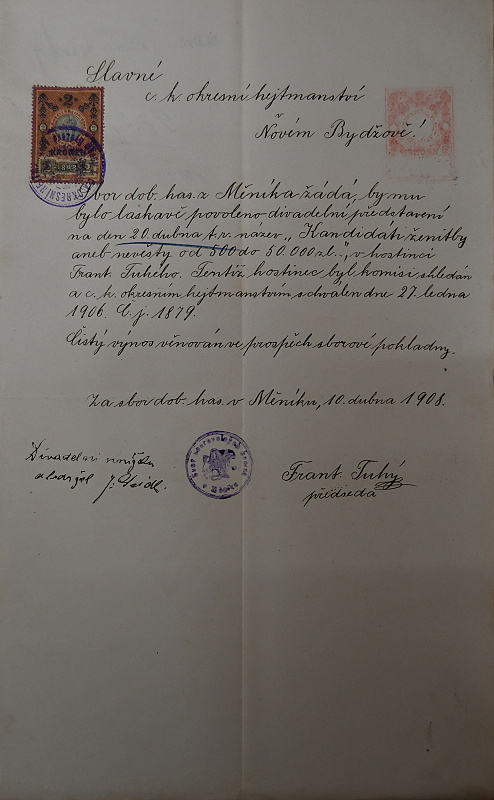 Slavné
c. k. okresní hejtmanství
Novém Bydžově!
2
1898
Sbor dob. has. z Měníka žádá, by mu
bylo laskavě povoleno divadelní představení
na den 20. dubna t. r. název „Kandidáti ženitby
aneb nevěsty od 500 do 50.000 zl.", v hostinci
Frant. Tuhého. Tentýž hostinec byl komisí shledán
a c. k. okresním hejtmanstvím schválen dne 27. ledna
1906. Č. j. 1879.
Čistý výnos věnován ve prospěch sborové pokladny.
Za sbor dob. has. v Měníku, 10. dubna 1908.
Divadelní
Frant. Tuhý
předseda